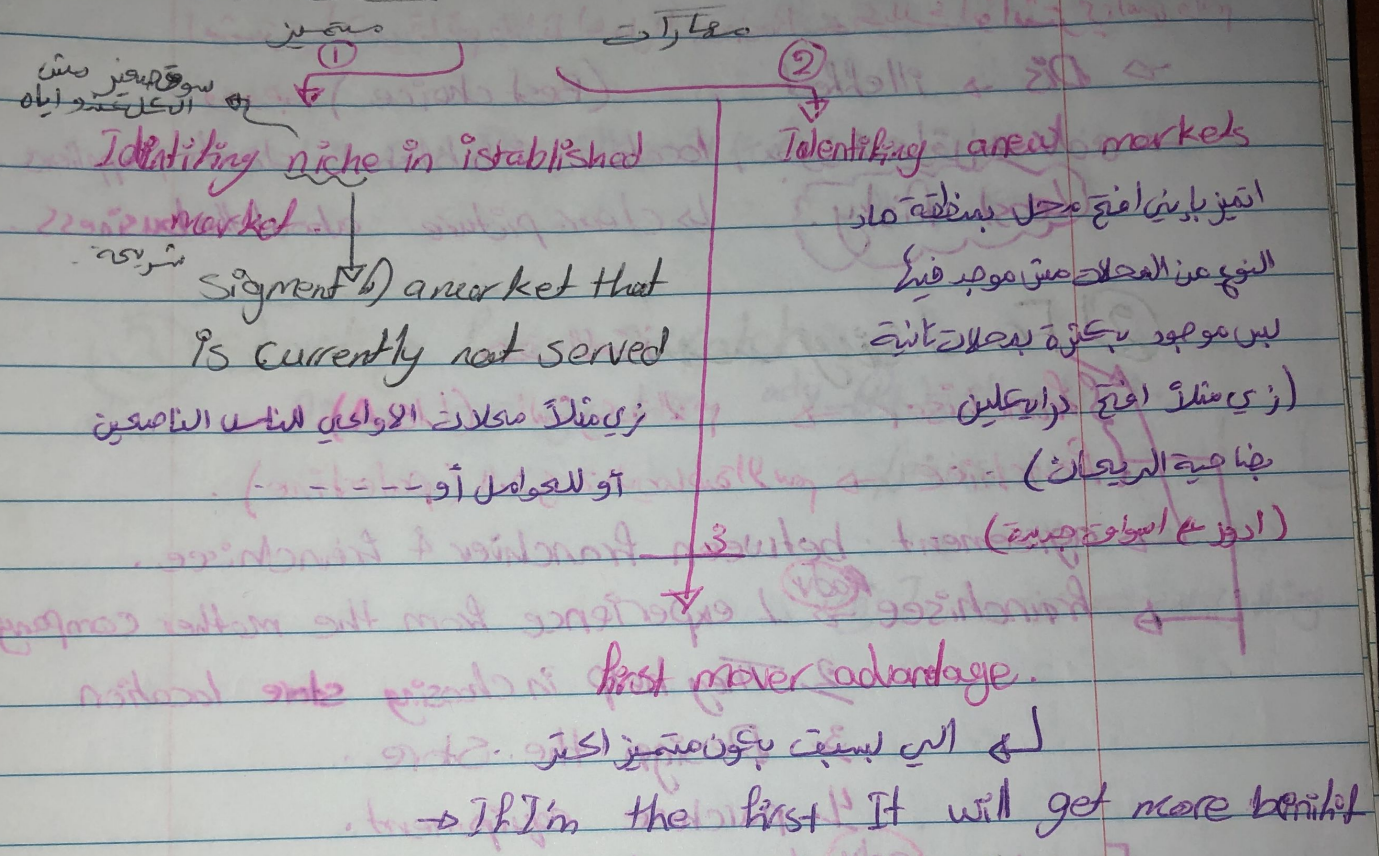 متميز
مهارات
① ②
سوق صغير مش
الكل عنده اياه
Identifing niche in istablished
market.
شريحة
sigment of a market that
is currently not served
زي مثلاً محلات الأواعي للناس الناصحين
أو للحوامل أو - - - - -
Identifing a new markets
اتميز باني افتح محل بمنطقة هاد
النوع من المحلات مش موجود فيها
بس موجود بكثرة بمحلات ثانية
(زي مثلاً افتح دراي كلين
بضاحية الريحان)
3
first mover advantage.
الي بسبق بكون متميز اكثر.
→ If I'm the first It will get more benifit